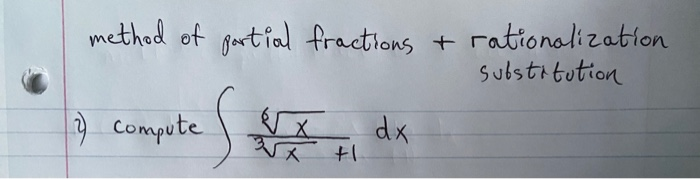 method of partial fractions + rationalization
substitution
2) compute ∫ ⁶√x / (³√x +1) dx